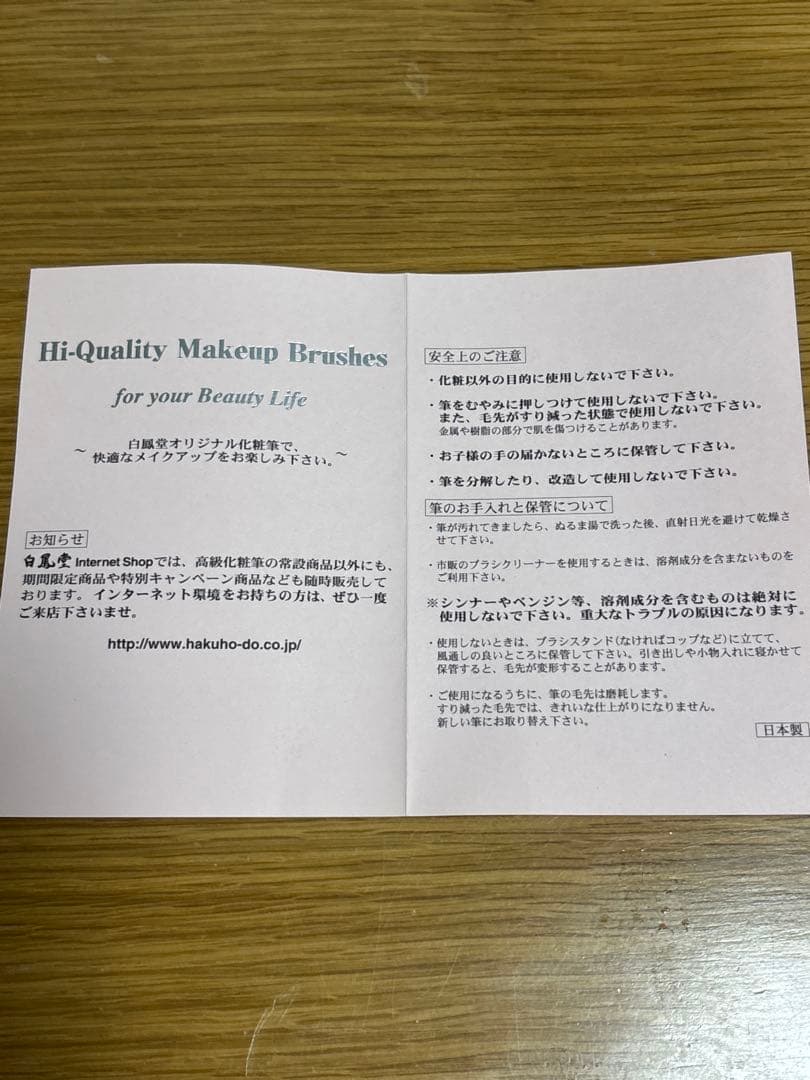 Hi-Quality Makeup Brushes
for your Beauty Life
～ 白鳳堂オリジナル化粧筆で、
快適なメイクアップをお楽しみ下さい。～
お知らせ
白鳳堂 Internet Shopでは、高級化粧筆の常設商品以外にも、
期間限定商品や特別キャンペーン商品なども随時販売して
おります。インターネット環境をお持ちの方は、ぜひ一度
ご来店下さいませ。
http://www.hakuho-do.co.jp/
安全上のご注意
・化粧以外の目的に使用しないで下さい。
・筆をむやみに押しつけて使用しないで下さい。
また、毛先がすり減った状態で使用しないで下さい。
金属や樹脂の部分で肌を傷つけることがあります。
・お子様の手の届かないところに保管して下さい。
・筆を分解したり、改造して使用しないで下さい。
筆のお手入れと保管について
・筆が汚れてきましたら、ぬるま湯で洗った後、直射日光を避けて乾燥さ
せて下さい。
・市販のブラシクリーナーを使用するときは、溶剤成分を含まないものを
ご利用下さい。
※シンナーやベンジン等、溶剤成分を含むものは絶対に
使用しないで下さい。重大なトラブルの原因になります。
・使用しないときは、ブラシスタンド(なければコップなど)に立てて、
風通しの良いところに保管して下さい。引き出しや小物入れに寝かせて
保管すると、毛先が変形することがあります。
・ご使用になるうちに、筆の毛先は磨耗します。
すり減った毛先では、きれいな仕上がりになりません。
新しい筆にお取り替え下さい。
日本製